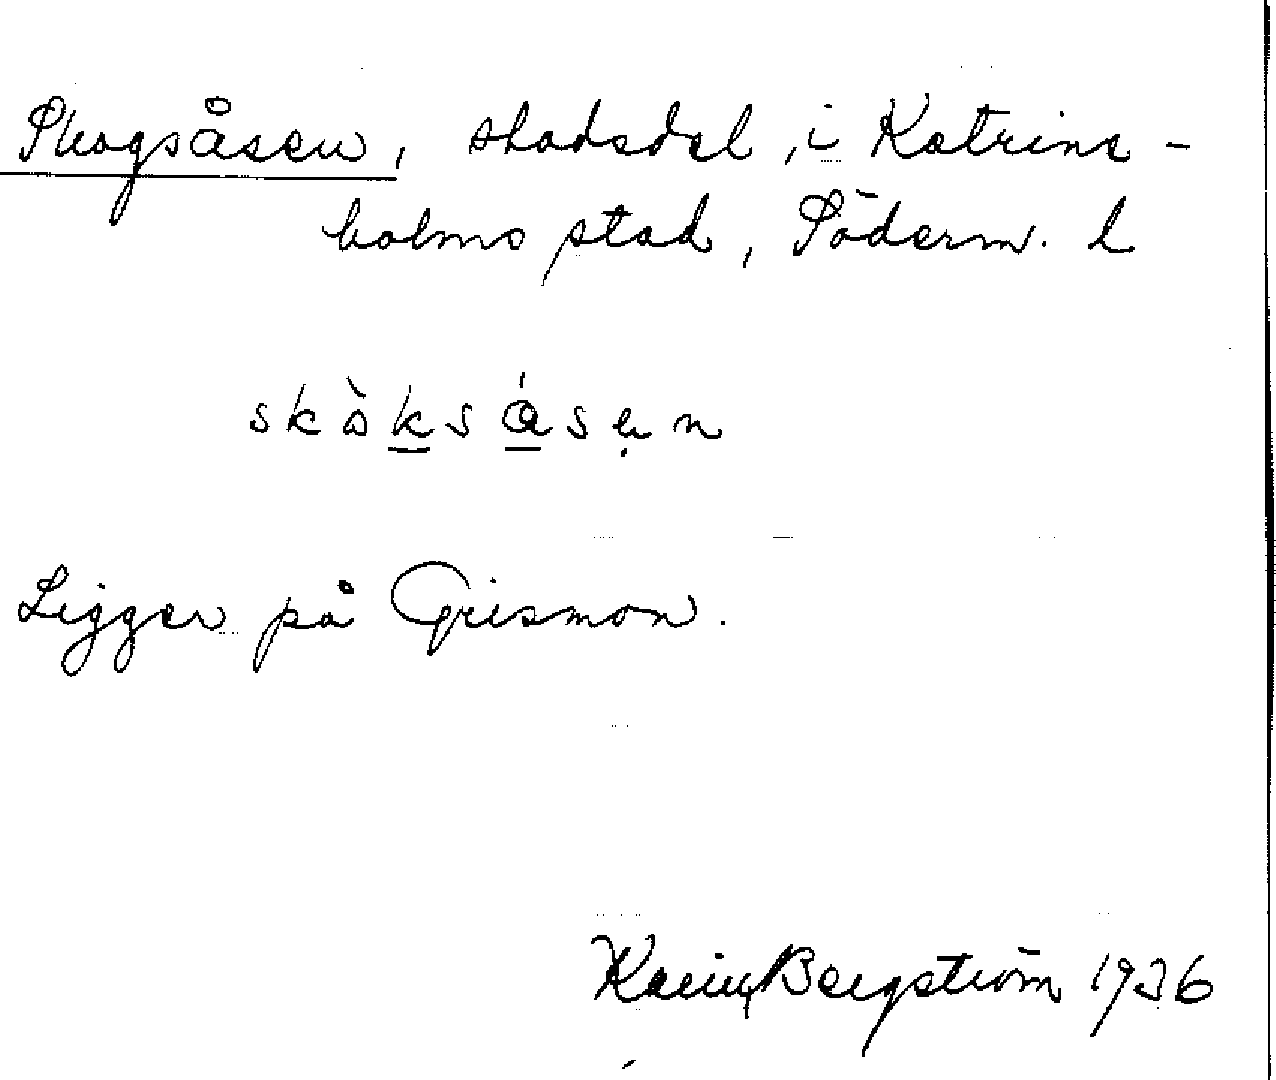 Skogsåsen, stadsdel, i Katrine-
holms stad, Söderm. l
skòksásen
Ligger på Grismon.
Karin Bergström 1936